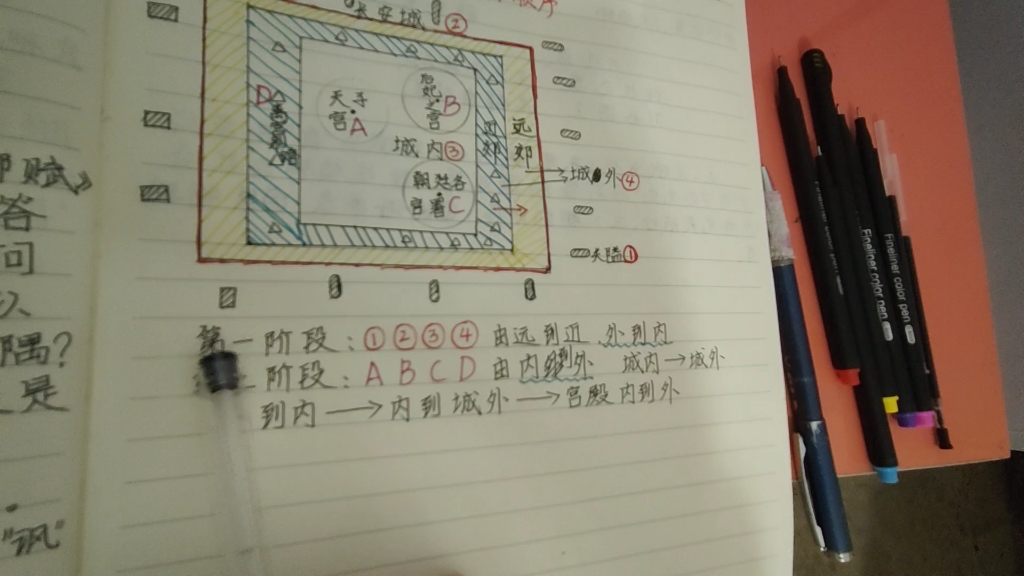 顺序
长安城②
天子宫A
后妃之宫B
城内③
朝廷各官署C
D
近郊
远郊
城外④
天隅①
第一阶段：①②③④ 由远到近、外到内
阶段：A B C D 由内到外 城内→城外
到内→内到城外→宫殿内到外
赋》
答
问
以
隅?
是
"讽"
Fineliner color pen
Fineliner color pen